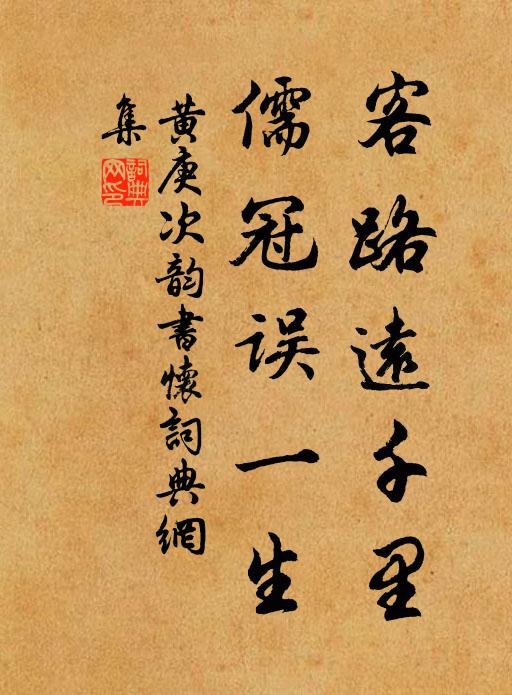 客路遠千里
儒冠误一生
黄庚次韵書懷詞典網
集
詞典
网印